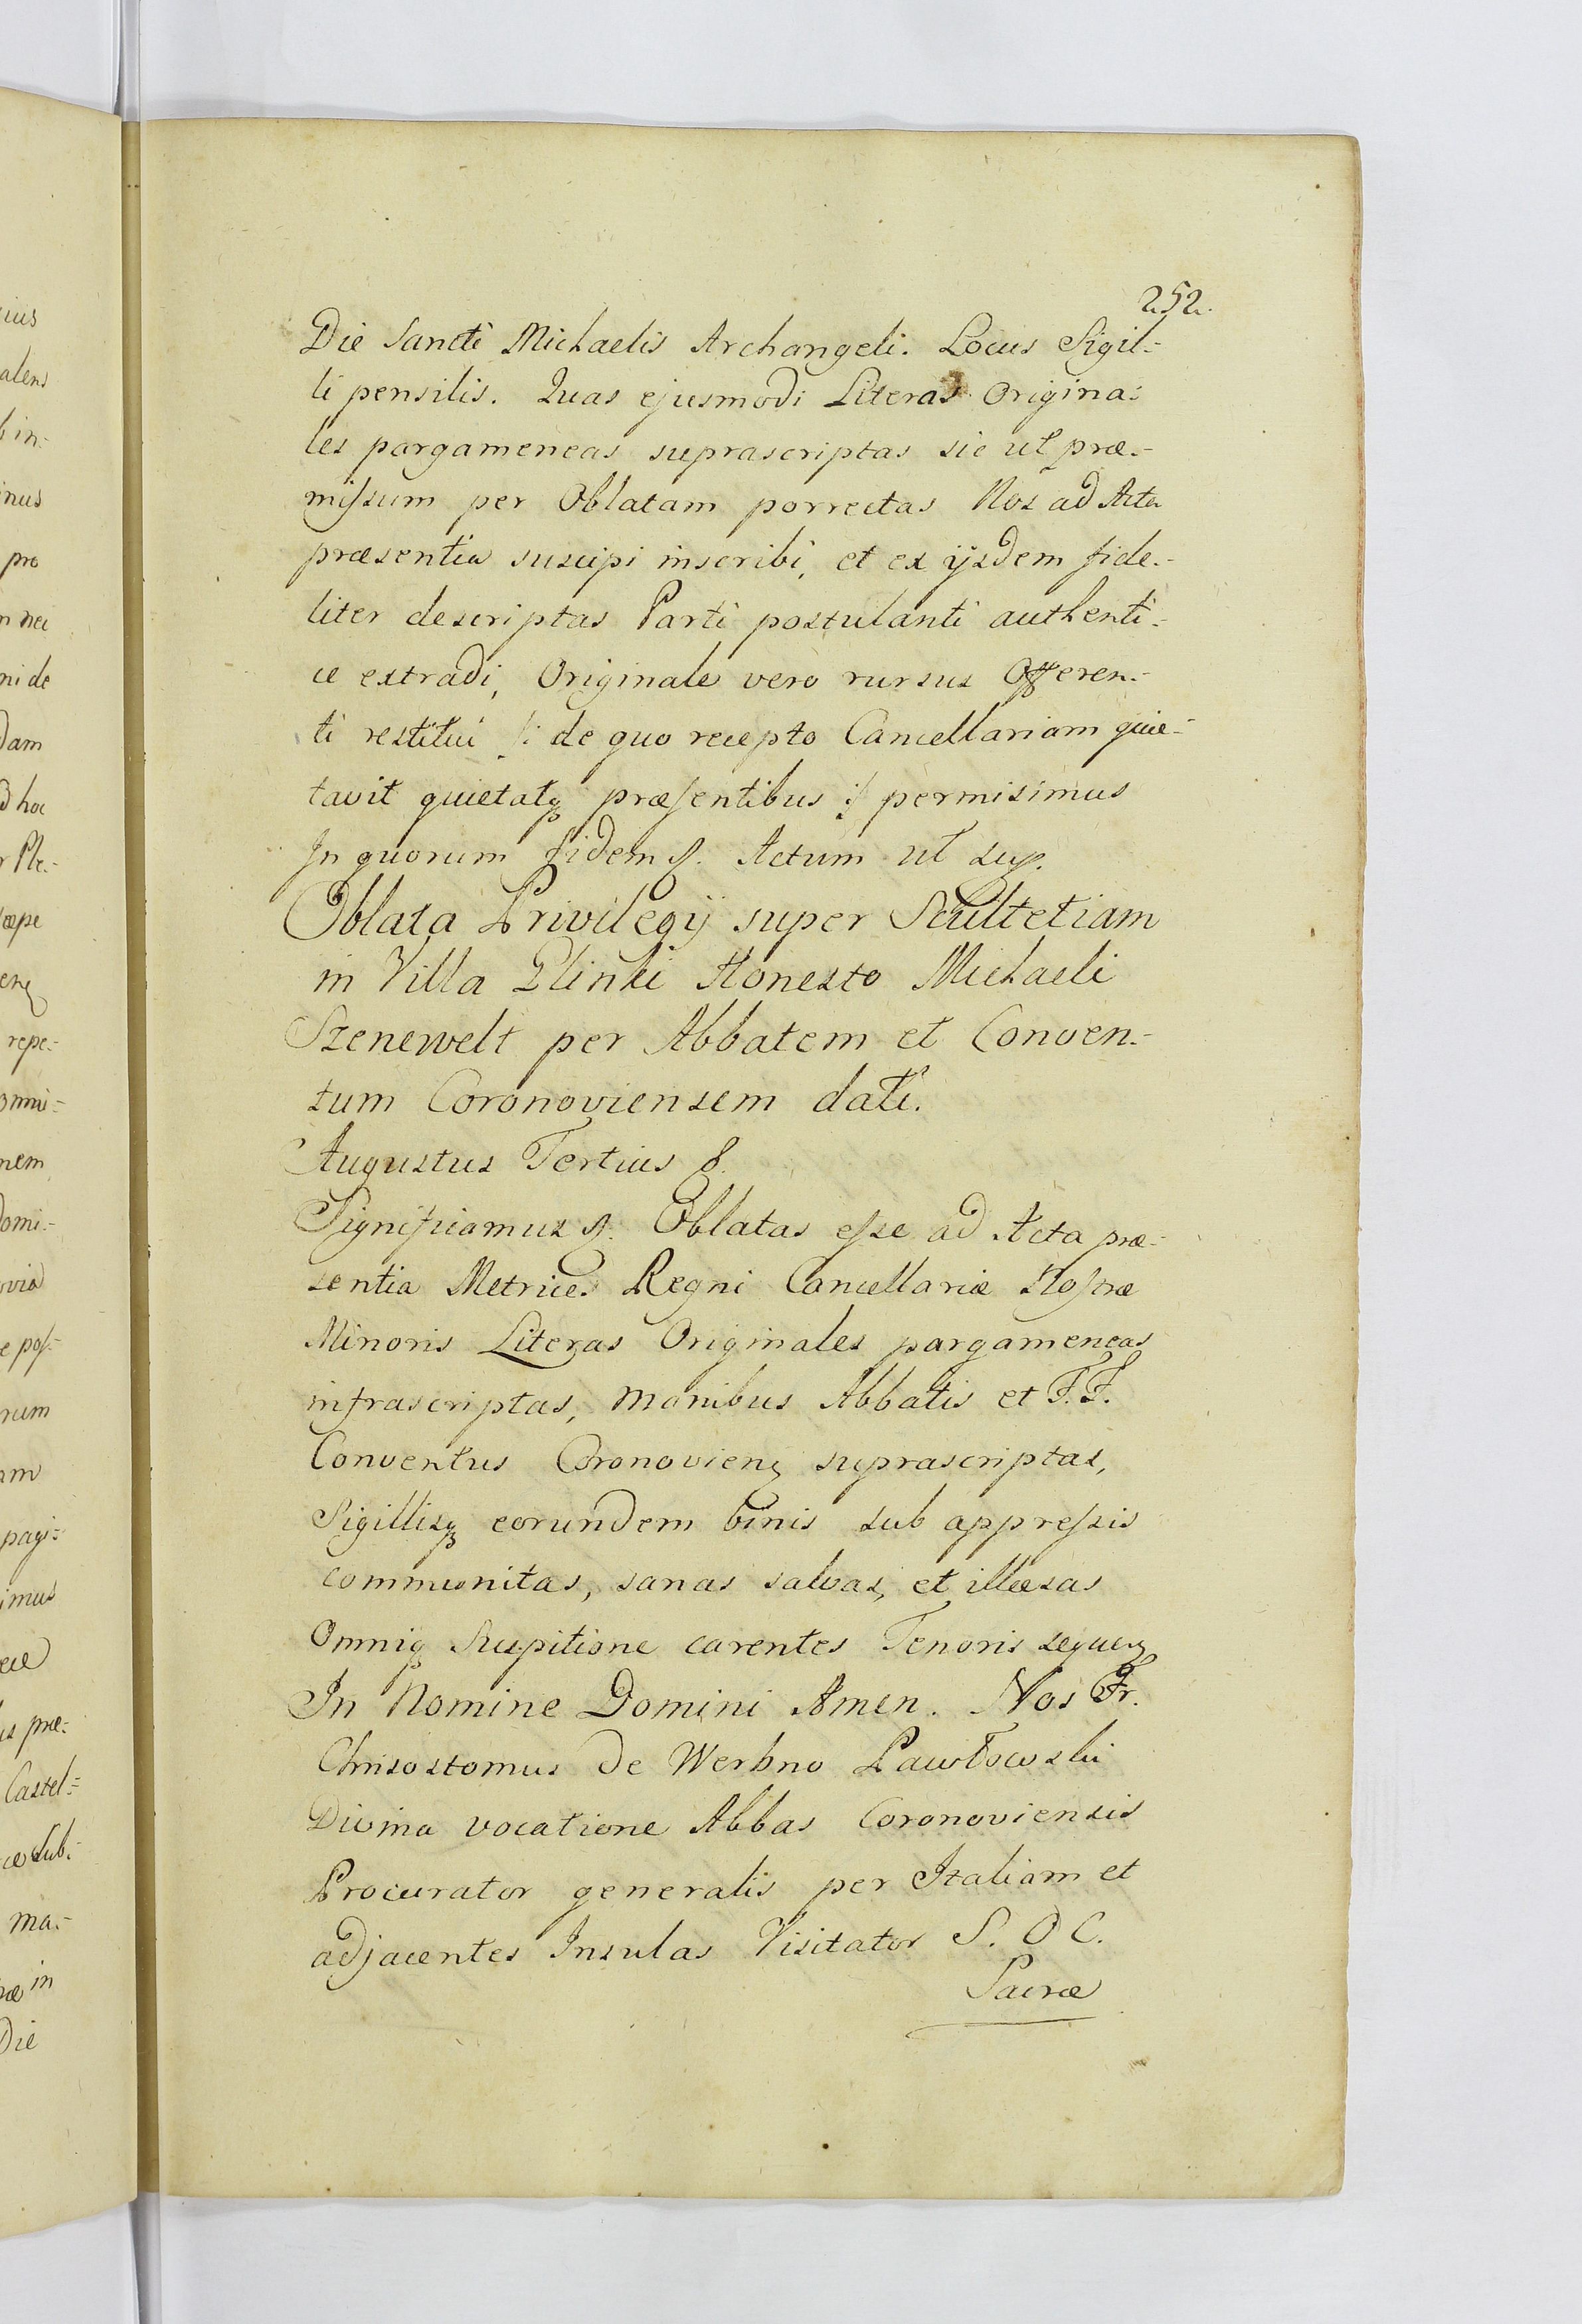 252.
Die Sancti Michaelis Archangeli. Locus Sigil-
li pensilis. Quas ejusmodi Literas Origina-
les pargameneas suprascriptas sic ut præ-
missum per Oblatam porrectas Nos ad Acta
præsentia suscipi inscribi, et ex ijsdem fide-
liter descriptas Parti postulanti authenti-
ce extradi, Originale vero rursus Offeren-
ti restitui /: de quo recepto Cancellariam quie-
tavit quietatq præsentibus :/ permisimus
In quorum fidem &. Actum ut sup.
Oblata Privilegij super Scultetiam
in Villa Glinki Honesto Michaeli
Szenewelt per Abbatem et Conven-
tum Coronoviensem dati.
Augustus Tertius &.
Significamus &. Oblatas esse ad Acta præ-
sentia Metrices Regni Cancellariæ Nostræ
Minoris Literas Originales pargameneas
infrascriptas, Manibus Abbatis et F.F.
Conventus Coronovien suprascriptas,
Sigillisq eorundem binis sub appressis
communitas, sanas salvas, et illæsas
Omniq Suspitione carentes Tenoris sequen
In Nomine Domini Amen. Nos Fr.
Chrisostomus de Werbno Pawłowski
Divina vocatione Abbas Coronoviensis
Procurator generalis per Italiam et
adjacentes Insulas Visitator S. O C.
Sacræ
ius
alens
in-
inus
pro
n nec
ni de
dam
d hoc
r Ple-
sæpe
repe-
omni-
nem
Domi-
ovia
e pos-
rum
am
pagi-
imus
præ-
Castel-
ce Sub-
ma-
in
Die